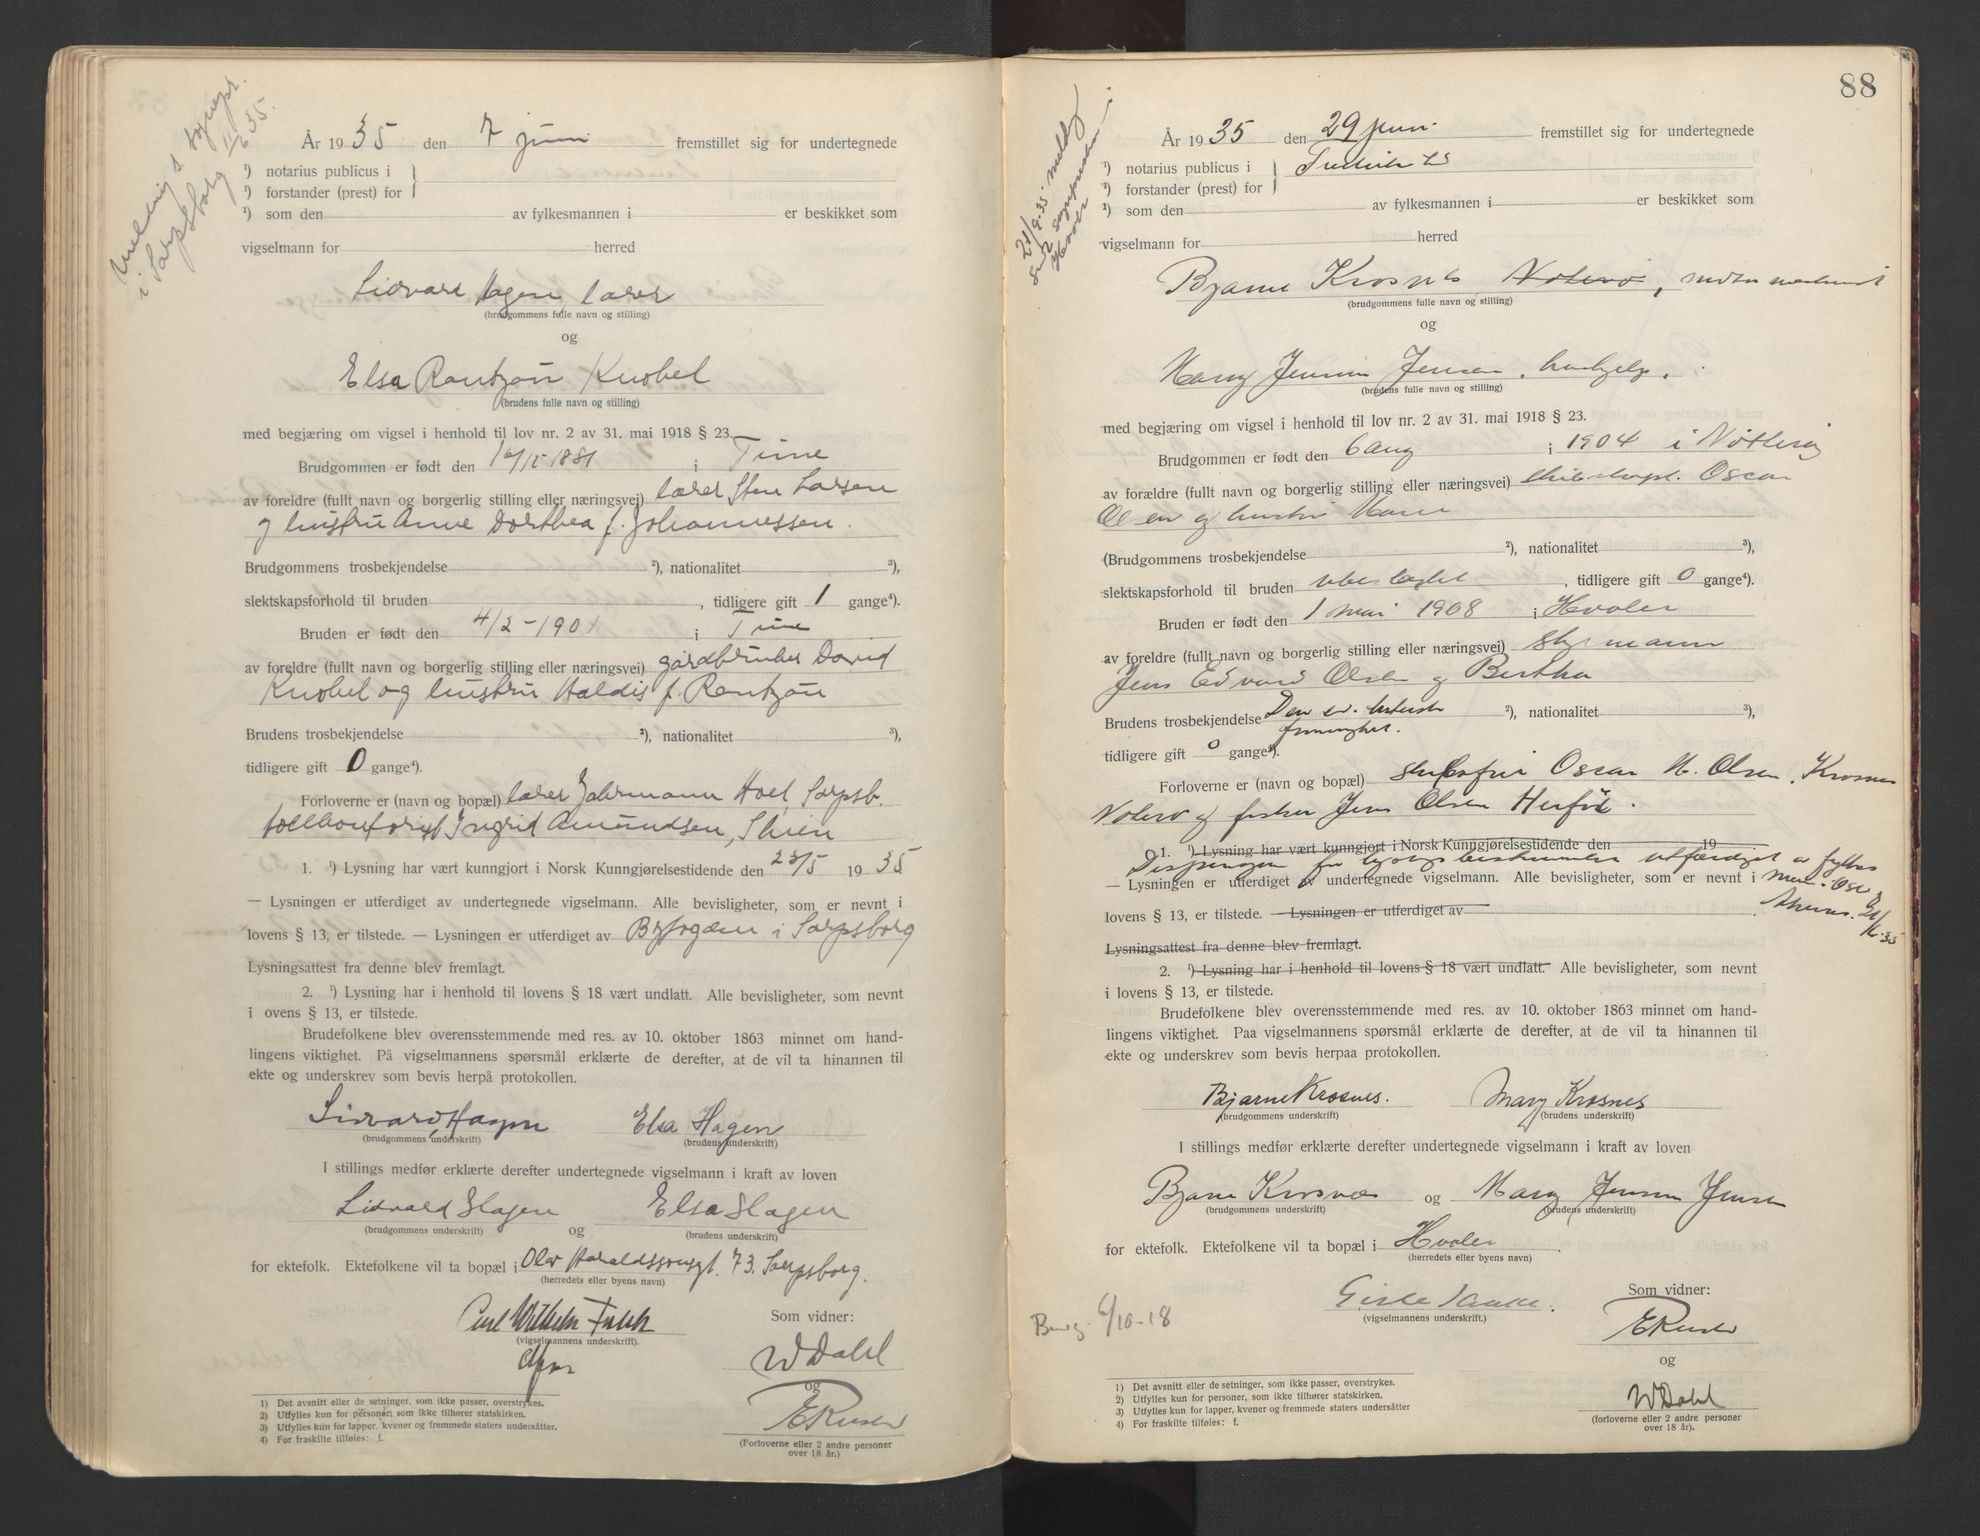 Melding s. sognepr.
i Sarpsborg 11/6 35.
År 1935 den 7 juni fremstillet sig for undertegnede
¹) notarius publicus i
¹) forstander (prest) for
¹) som den av fylkesmannen i er beskikket som
vigselmann for herred
Sidvard Hagen, lærer
(brudgommens fulle navn og stilling)
og
Elsa Rantzau Knobel
(brudens fulle navn og stilling)
med begjæring om vigsel i henhold til lov nr. 2 av 31. mai 1918 § 23.
Brudgommen er født den 1881 i Tune
av foreldre (fullt navn og borgerlig stilling eller næringsvei) lærer Sten Larsen
og hustru Anne Dorthea f. Johannessen.
Brudgommens trosbekjendelse ²), nationalitet ³),
slektskapsforhold til bruden , tidligere gift 1 gange⁴).
Bruden er født den 4/2-1901 i Tune
av foreldre (fullt navn og borgerlig stilling eller næringsvei) gårdbruker David
Knobel og hustru Haldis f. Rantzau
Brudens trosbekjendelse ²), nationalitet ³),
tidligere gift 0 gange⁴).
Forloverne er (navn og bopæl) lærer Hoel, Sarpsb.
Ingrid Amundsen, Skien
1. ¹) Lysning har vært kunngjort i Norsk Kunngjørelsestidende den 23/5 1935
— Lysningen er utferdiget av undertegnede vigselmann. Alle bevisligheter, som er nevnt i
lovens § 13, er tilstede. — Lysningen er utferdiget av Byfogden i Sarpsborg
Lysningsattest fra denne blev fremlagt.
2. ¹) Lysning har i henhold til lovens § 18 vært undlatt. Alle bevisligheter, som nevnt
i ovens § 13, er tilstede.
Brudefolkene blev overensstemmende med res. av 10. oktober 1863 minnet om hand-
lingens viktighet. På vigselmannens spørsmål erklærte de derefter, at de vil ta hinannen til
ekte og underskrev som bevis herpå protokollen.
Sidvard Hagen Elsa Hagen
(brudgommens underskrift) (brudens underskrift)
I stillings medfør erklærte derefter undertegnede vigselmann i kraft av loven
Sidvald Hagen og Elsa Hagen
(brudgommens underskrift) (brudens underskrift)
for ektefolk. Ektefolkene vil ta bopæl i Olav Haraldssonsgt. 73. Sarpsborg.
(herredets eller byens navn)
Carl Wilhelm Falck
(vigselmannens underskrift).
Som vidner:
W Dahl
og
(Forloverne eller 2 andre personer
over 18 år.)
1) Det avsnitt eller de setninger, som ikke passer, overstrykes.
2) Utfylles kun for personer som ikke tilhører statskirken.
3) Utfylles kun for lapper, kvener og fremmede staters undersåtter.
4) For fraskilte tilføies: f.
88
melding
Hvaler
År 1935 den 29 juni fremstillet sig for undertegnede
¹) notarius publicus i
¹) forstander (prest) for
¹) som den av fylkesmannen i er beskikket som
vigselmann for herred
Bjarne Krosnes Noterø,
(brudgommens fulle navn og stilling)
og
Mary Jensine Jensen, hushjelp.
(brudens fulle navn og stilling)
med begjæring om vigsel i henhold til lov nr. 2 av 31. mai 1918 § 23.
Brudgommen er født den 6 aug i 1904 i Nøtterøy
av forældre (fullt navn og borgerlig stilling eller næringsvei) skibskapt. Oscar
Olsen og hustru
(Brudgommens trosbekjendelse ²), nationalitet ³),
slektskapsforhold til bruden ubeslægtet , tidligere gift 0 gange⁴).
Bruden er født den 1 mai 1908 i Hvaler
av foreldre (fullt navn og borgerlig stilling eller næringsvei) styrmann
Jens Edvard Olsen og Bertha
Brudens trosbekjendelse Den ev. lutherske ²), nationalitet ³),
frimenighet.
tidligere gift 0 gange⁴).
Forloverne er (navn og bopæl) Oscar M. Olsen, Krosnes
Noterø og fisker Jens Olsen Herføl.
1. ¹) Lysning har vært kunngjort i Norsk Kunngjørelsestidende den 19
— Lysningen er utferdiget av undertegnede vigselmann. Alle bevisligheter, som er nevnt i
lovens § 13, er tilstede. — Lysningen er utferdiget av
Lysningsattest fra denne blev fremlagt.
2. ¹) Lysning har i henhold til lovens § 18 vært undlatt. Alle bevisligheter, som nevnt
i lovens § 13, er tilstede.
Brudefolkene blev overensstemmende med res. av 10. oktober 1863 minnet om hand-
lingens viktighet. Paa vigselmannens spørsmål erklærte de derefter, at de vil ta hinannen til
ekte og underskrev som bevis herpaa protokollen.
Bjarne Krosnes. Mary Krosnes
(brudgommens underskrift) (brudens underskrift)
I stillings medfør erklærte derefter undertegnede vigselmann i kraft av loven
Bjarne Krosnes og Mary Jensine Jensen
(brudgommens underskrift) (brudens underskrift)
for ektefolk. Ektefolkene vil ta bopæl i Hvaler
(herredets eller byens navn)
6/10-18
(vigselmannens underskrift.)
Som vidner:
og
W Dahl
(forloverne eller 2 andre personer
over 18 år).
1) Det avsnitt eller de setninger, som ikke passer, overstrykes.
2) Utfylles kun for personer, som ikke tilhører statskirken.
3) Utfylles kun for lapper, kvener og fremmede staters undersåtter
4) For fraskilte tilføies: f.